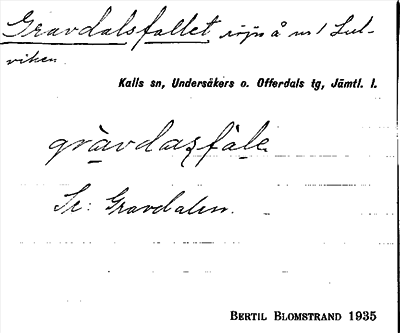 Gravdalsfallet röjn å m/ Sul-
viken.
Kalls sn, Undersåkers o. Offerdals tg, Jämtl. l.
gràvdaʂfàle
Se: Gravdalen.
BERTIL BLOMSTRAND 1935